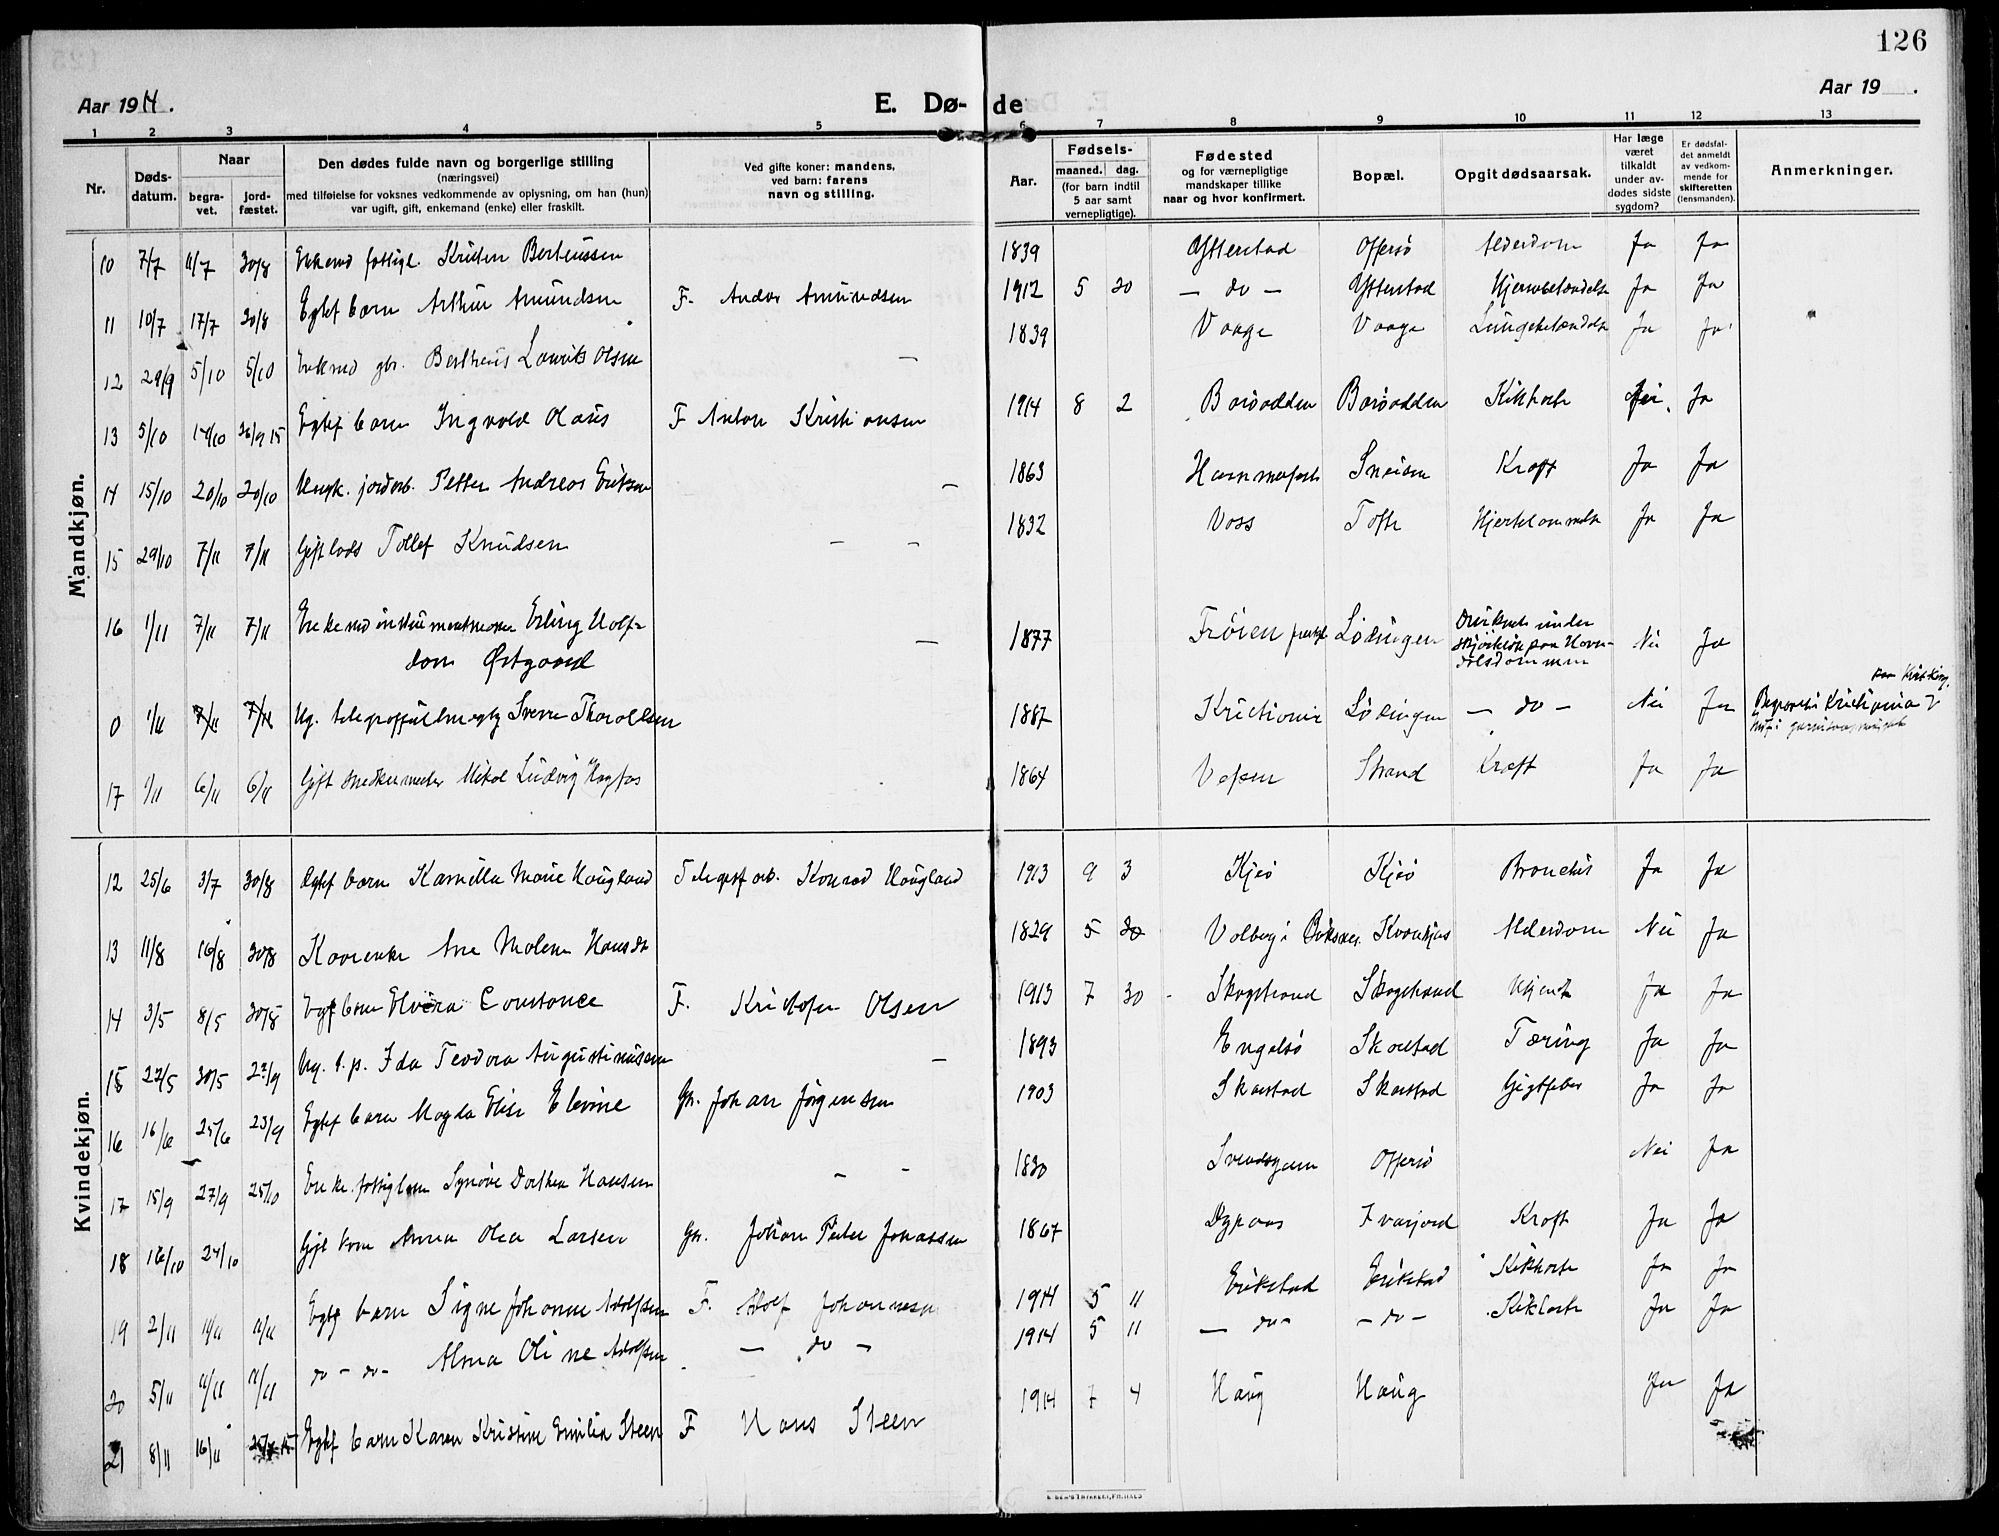 126
Aar 1914.
E. Døde
Aar 19 .
1 2 3 4 5 6 7 8 9 10 11 12 13
Nr.
Døds-
datum.
Naar
begra-
vet.
jord-
fæstet.
Den dødes fulde navn og borgerlige stilling
(næringsvei)
med tilføielse for voksnes vedkommende av oplysning, om han (hun)
var ugift, gift, enkemand (enke) eller fraskilt.
Ved gifte koner: mandens,
ved barn: farens
navn og stilling.
Aar.
Fødsels-
maaned. dag.
(for barn indtil
5 aar samt
vernepligtige).
Fødested
og for værnepligtige
mandskaper tillike
naar og hvor konfirmert.
Bopæl.
Opgit dødsaarsak.
Har læge
været
tilkaldt
under av-
dødes sidste
sygdom?
Er dødsfal-
det anmeldt
av vedkom-
mende for
skifteretten
(lensmanden).
Anmerkninger.
Mandkjøn.
10 7/7 11/7 30/8 Enkemd fattigl. Kristen Berteussen 1839 Ytterstad Offersø Alderdom Ja Ja
11 10/7 17/7 30/8 Egtef barn Arthur Amundsen F. Andor Amundsen 1912 5 20 — do — Ytterstad Hjernebetændelse Ja Ja
12 29/9 5/10 5/10 Enkemd gbr. Bertheus Laurits Olsen — 1839 Vaage Vaage Lungebetændelse Ja Ja
13 5/10 14/10 26/9 15 Egtef barn Ingvald Olaus F Anton Kristiansen 1914 8 2 Barøodden Barøodden Kikhoste Nei. Ja
14 15/10 20/10 20/10 Ungk. jordarb. Petter Andreas Eriksen — 1863 Hammerfest Sneisen Kræft Ja Ja
15 29/10 7/11 7/11 Gift lods Tollef Knudsen — — 1832 Voss Tofte Hjertelammelse Ja Ja
16 1/11 7/11 7/11 Enkemd instrumentmaker Erling Half-
dan Østgaard — 1877 Frøien Lødingen Druknet under
skjøitning paa Hovn-
dalsdammen Nei Ja
0 1/11 7/11 7/11 Ug. telegraffuldmegtg Sverre Thoralfsen 1887 Kristiania Lødingen — do — Nei Ja Begravet i Kristiania
17 1/11 6/11 6/11 Gift snedkermester Mikal Ludvig Hagfas 1864 Vefsen Strand Kræft Ja Ja
Kvindekjøn.
12 25/6 3/7 30/8 Egtef barn Kamilla Marie Haugland Telegraf arb. Konrad Haugland 1913 9 3 Kjeø Kjeø Bronchit Ja Ja
13 11/8 16/8 30/8 Kaarenke Ane Malene Hansdt 1829 5 30 Valberg i Buksnes. Alderdom Nei Ja
14 3/5 8/5 30/8 Egtf barn Elvira Constance F. Kristofer Olsen 1913 7 30 Skogstrand Skogstrand Ukjendt Ja Ja
15 22/5 30/5 23/9 Ug. t. p. Ida Teodora Augustinussen — 1893 Engelsø Skarstad Tæring Ja Ja
16 16/6 25/6 23/9 Egtef barn Magda Elise Elevine Gr. Johan Jørgensen 1903 Skarstad Skarstad Gigtfeber Ja Ja
17 15/9 27/9 25/10 Enke. fattiglem Synøve Dorthea Hansen — — 1830 Svendsgam Offersø Nei Ja
18 16/10 24/10 Gift kone Anna Olea Larsen Gr. Johan Peder Johansen 1867 Dypaas Ivarjord Kræft Ja Ja
19 2/11 11/11 11/11 Egtef barn Signe Johanne Adolfsen F. Adolf Johannesen 1914 5 11 Erikstad Erikstad Kikhoste Ja Ja
20 5/11 11/11 11/11 do — do — Alma Oline Adolfsen — do — 1914 5 11 — do — — do — Kikhoste Ja Ja
21 8/11 16/11 Egtef barn Karen Kristine Emilie Steen F Hans Steen 1914 7 4 Haug Haug Ja Ja